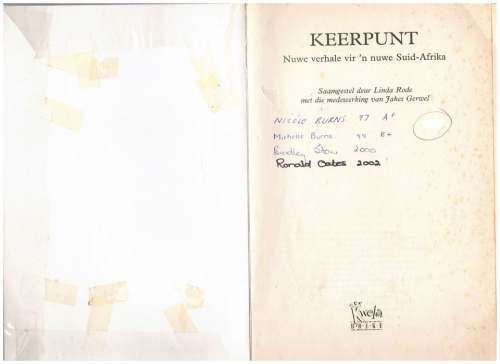 KEERPUNT
Nuwe verhale vir 'n nuwe Suid-Afrika
Saamgestel deur Linda Rode
met die medewerking van Jakes Gerwel
NICOLE BURNS 97 A+
Michelle Burns 99 B+
Bradley Stow 2000
Ronald Oates 2002
Kwela